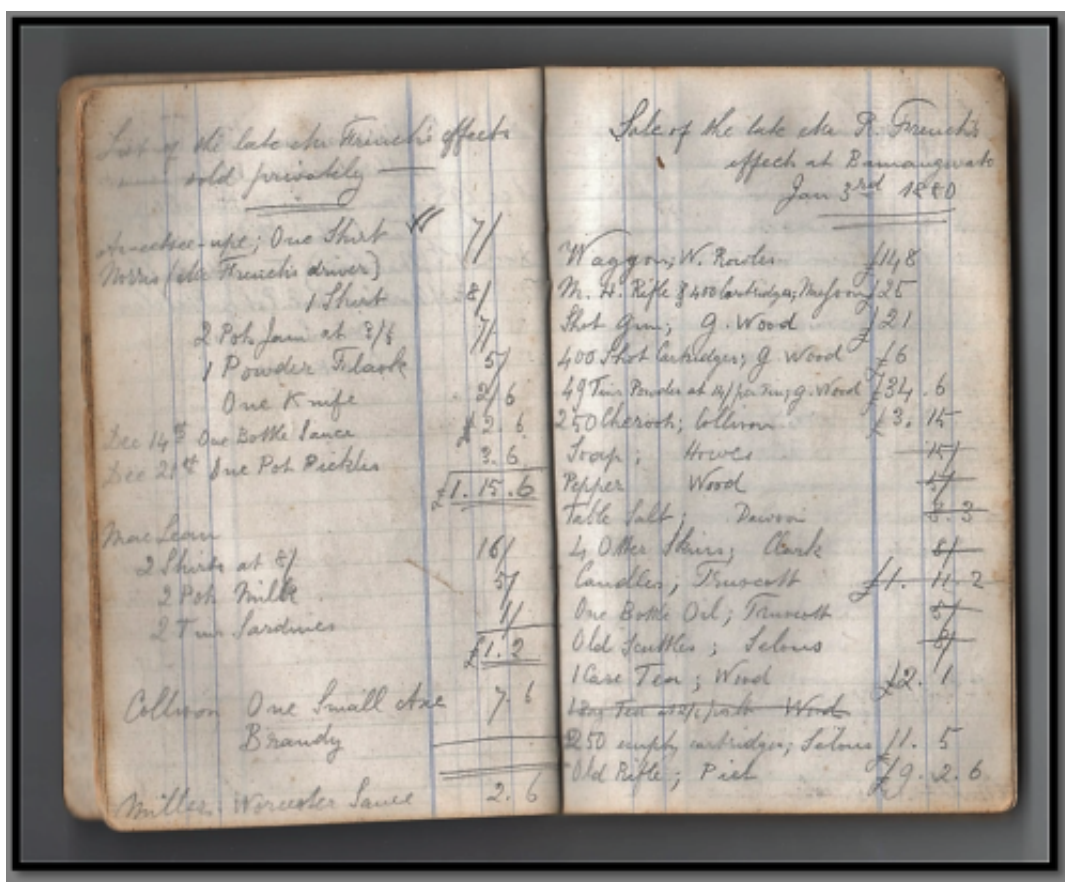 List of the late Mr French's effects
sold privately
One Shirt 7/
Norris (Mr French's driver)
1 Shirt 8/
2 Pots Jam at 3/6 7/
1 Powder Flask 5/
One Knife 2/6
Dec 14th One Bottle Sauce 2.6
Dec 21st One Pot Pickles 3.6
£1.15.6
MacLean
2 Shirts at 8/ 16/
2 Pots Milk 5/
2 Tins Sardines 1/
£1.2
Collison One Small Axe 7.6
Brandy
Miller. Worcester Sauce 2.6
Sale of the late Mr R. French's
effects at Bamangwato
Jan 3rd 1880
Waggon; W. £148
M. H. Rifle & 400 Cartridges; £25
Shot Gun; G. Wood £21
400 Shot Cartridges; G Wood £6
49 Tins Powder at 14/ per Tin; G. Wood £34.6
250 Cheroots; Collison £3.15
Soap; Howes 15/
Pepper Wood 5/
Table Salt; Dawson 3.3
4 Otter Skins; Clark 8/
Candles; Truscott £1.11.2
One Bottle Oil; Truscott 5/
Old Scuttles; Selous 8/
1 Case Tea; Wood £2.1
Wood
250 empty cartridges; Selous £1.5
Old Rifle; Piet £9.2.6